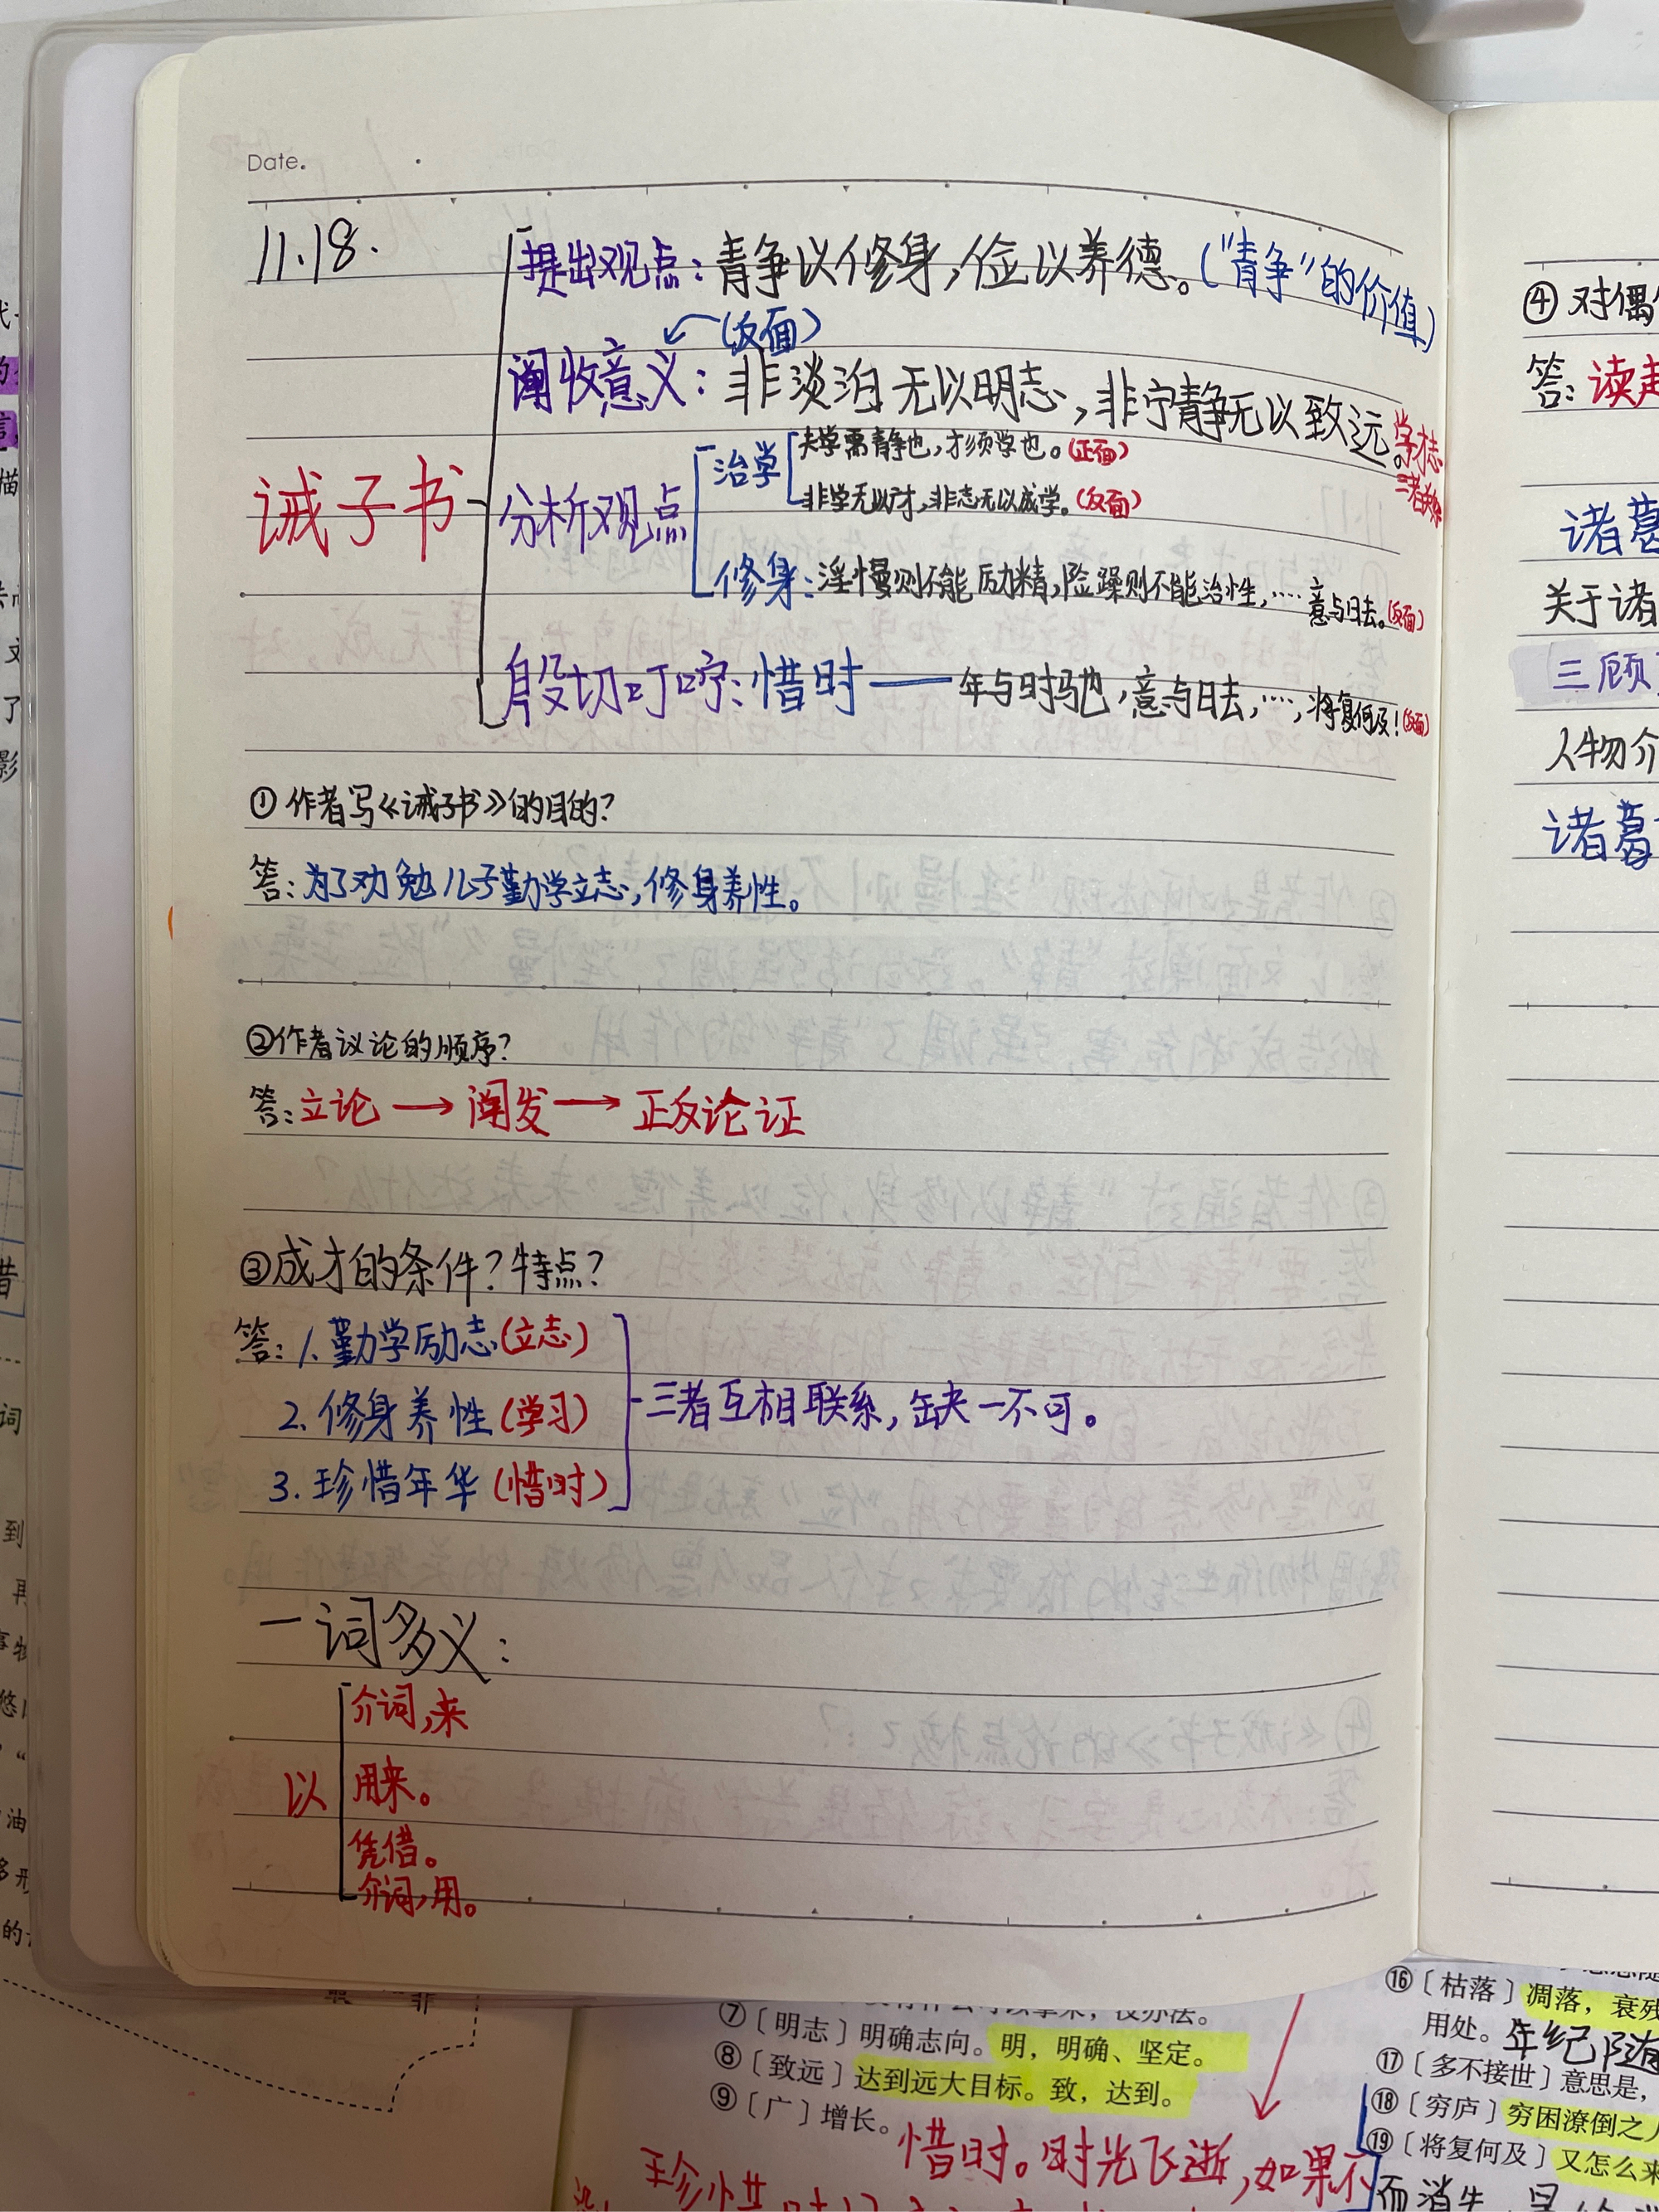 Date.
11.18.
提出观点：青争以修身，俭以养德。（“青争”的价值）
（反面）
阐收意义：非淡泊无以明志，非宁静无以致远。
学才志
三者关系
诫子书
分析观点
治学
夫学需静也，才须学也。（正面）
非学无以才，非志无以成学。（反面）
修身：淫慢则不能励精，险躁则不能治性，…… 意与日去。（反面）
殷切叮咛：惜时——年与时驰，意与日去，……，将复何及！（反面）
①作者写《诫子书》的目的？
答：为了劝勉儿子勤学立志，修身养性。
②作者议论的顺序？
答：立论→阐发→正反论证
③成才的条件？特点？
答：1.勤学励志（立志）
2.修身养性（学习）
3.珍惜年华（惜时）
三者互相联系，缺一不可。
一词多义：
以
介词，来
用来。
凭借。
介词，用。
④对偶
答：读起
诸葛
关于诸
三顾
人物介
诸葛
⑦〔明志〕明确志向。明，明确、坚定。
⑧〔致远〕达到远大目标。致，达到。
⑨〔广〕增长。
惜时。时光飞逝，如果不
珍惜
⑯〔枯落〕凋落，衰残
用处。年纪随
⑰〔多不接世〕意思是，
⑱〔穷庐〕穷困潦倒之人
⑲〔将复何及〕又怎么来
而消失